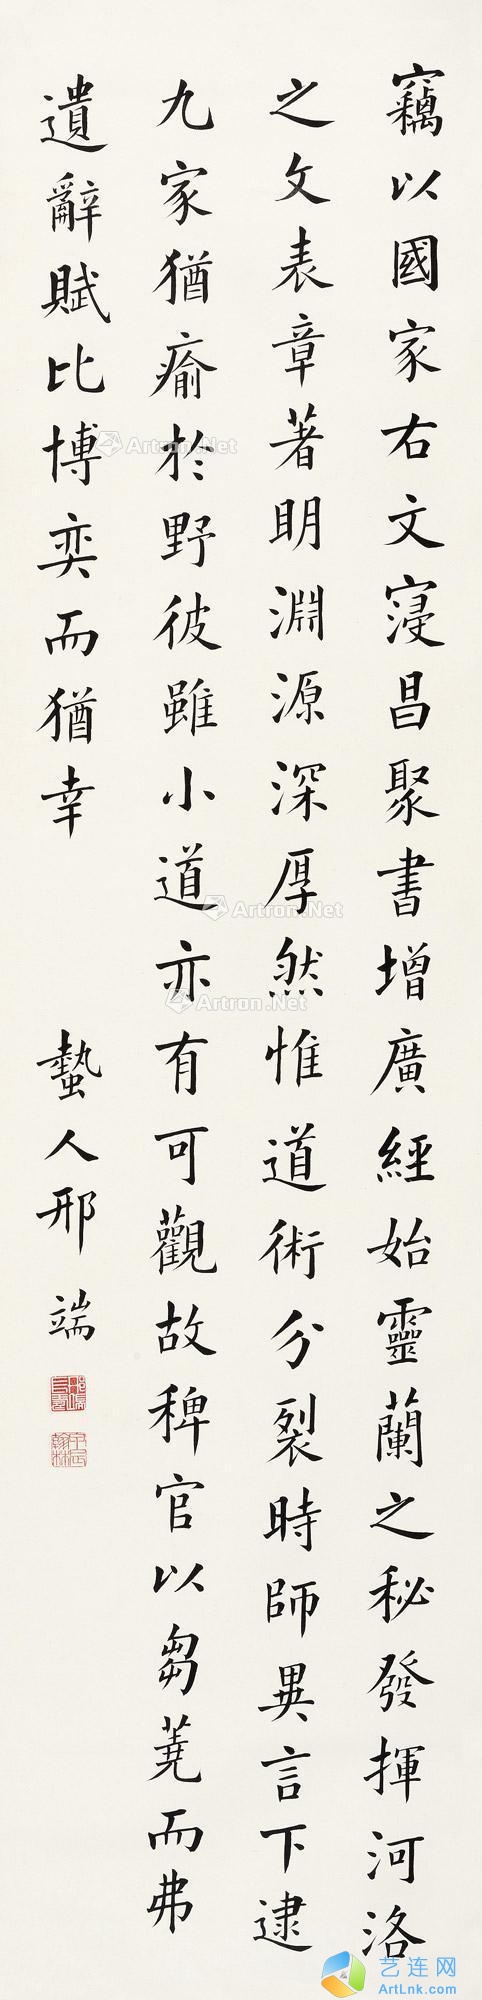 竊以國家右文寖昌聚書增廣經始靈蘭之秘發揮河洛
之文表章著明淵源深厚然惟道術分裂時師異言下逮
九家猶瘉於野彼雖小道亦有可觀故稗官以芻蕘而弗
遺辭賦比博奕而猶幸
蟄人邢端
Artron.Net
Artron.Net
Artron.Net
艺连网
ArtLnk.com